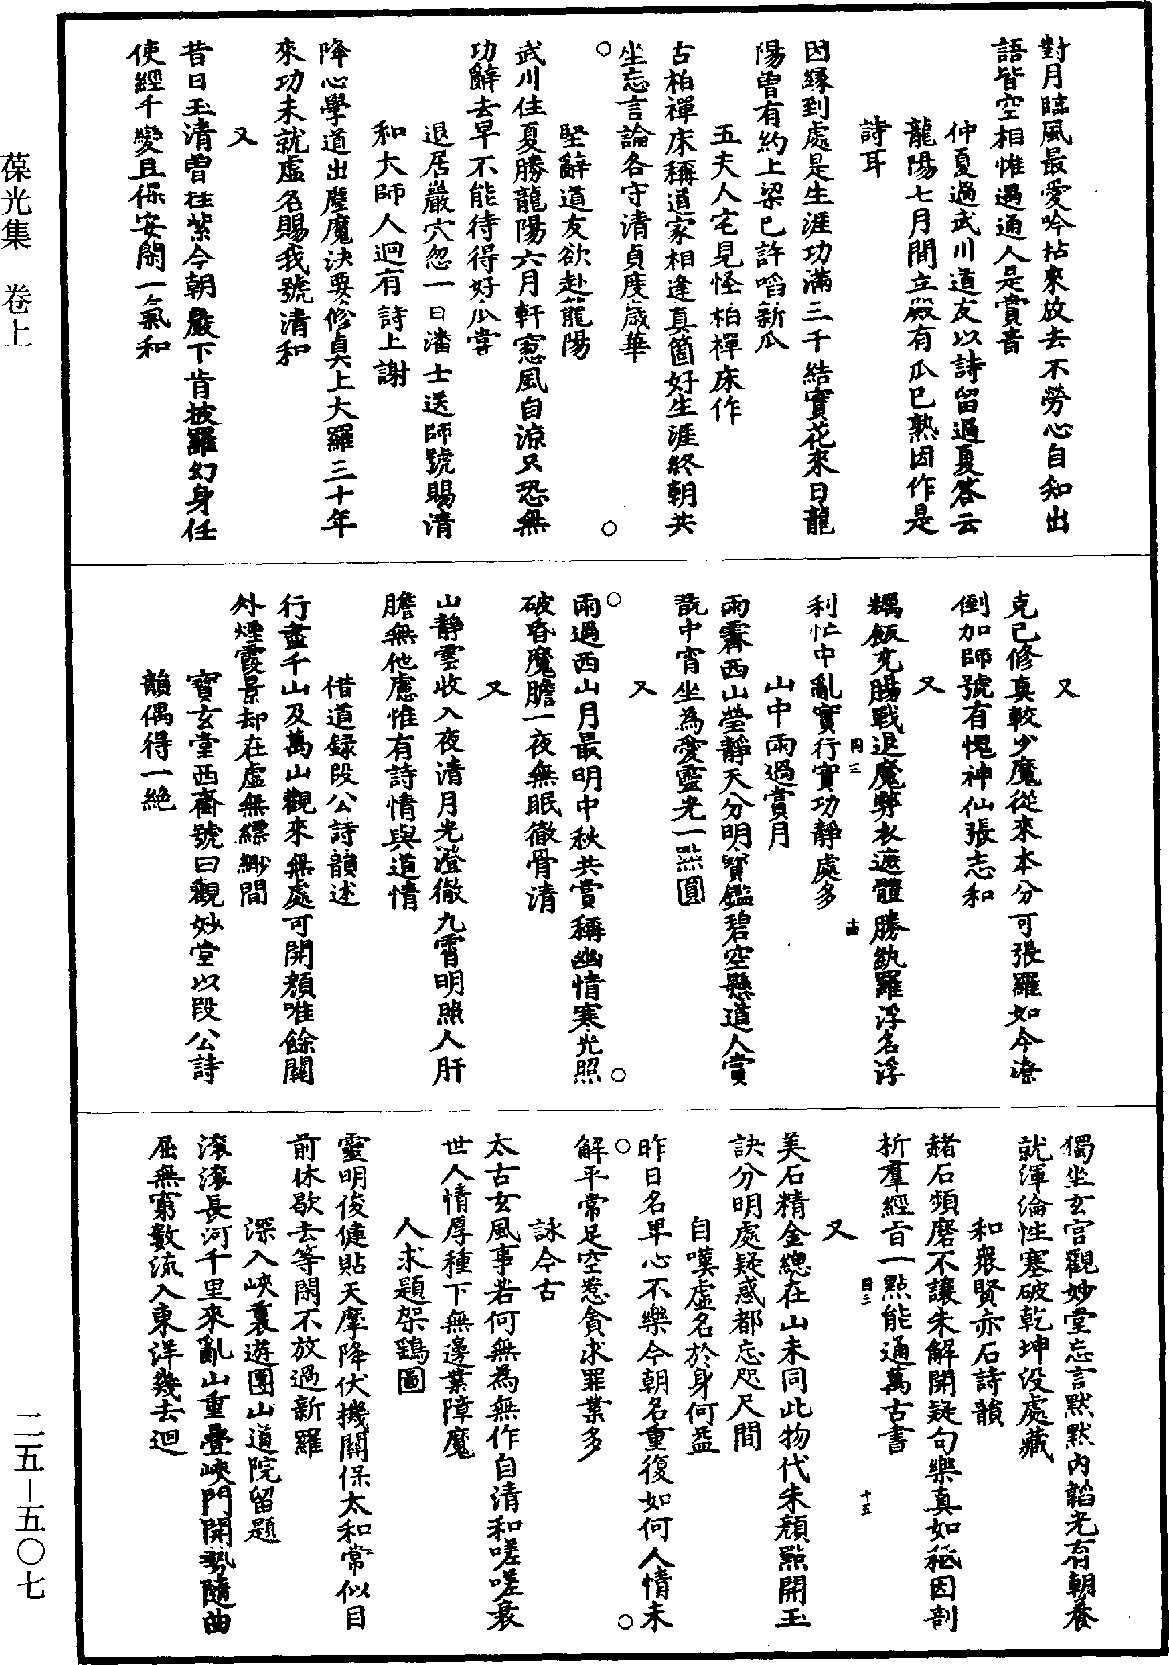 對月臨風最愛吟拈來放去不勞心自知出
語皆空相惟遇通人是賞音
仲夏過武川道友以詩留過夏答云
龍陽七月間立殿有瓜已熟因作是
詩耳
因緣到處是生涯功滿三千結實花來日龍
陽曾有約上梁已許㗖新瓜
五夫人宅見怪柏禪床作
古柏禪床稱道家相逢真箇好生涯終朝共
坐忘言論各守清貞度歲華
堅辭道友欲赴龍陽
武川住夏勝龍陽六月軒窓風自涼只恐無
功辭去早不能待得好瓜嘗
退居巖穴忽一日潘士送師號賜清
和大師人迴有詩上謝
降心學道出塵魔決要修真上大羅三十年
來功未就虛名賜我號清和
又
昔日玉清曾拄紫今朝嚴下肯披羅幻身任
使經千變且保安閑一氣和
又
克己修真較少魔從來本分可張羅如今潦
倒加師號有愧神仙張志和
又
糲飯充腸戰退魔弊衣遮體勝紈羅浮名浮
利忙中亂實行實功靜處多
山中雨過賞月
雨霽西山瑩靜天分明寶鑑碧空懸道人賞
翫中宵坐為愛靈光一點圓
又
雨過西山月最明中秋共賞稱幽情寒光照
破昏魔膽一夜無眠徹骨清
又
山靜雲收入夜清月光澄徹九霄明照人肝
膽無他慮惟有詩情與道情
借道録段公詩韻述
行盡千山及萬山觀來無處可開顏唯餘關
外煙霞景却在虛無縹緲間
寶玄堂西齋號曰觀妙堂以段公詩
韻偶得一絕
獨坐玄宮觀妙堂忘言默默內韜光有朝養
就渾淪性塞破乾坤没處藏
和衆賢赤石詩韻
赭石頻磨不讓朱解開疑句樂真如秖因剖
析羣經旨一點能通萬古書
又
美石精金總在山未同此物代朱顏點開玉
訣分明處疑惑都忘咫尺間
自嘆虛名於身何益
昨日名卑心不樂今朝名重復如何人情未
解平常足空惹貪求罪業多
詠今古
太古玄風事若何無為無作自清和嗟嗟衰
世人情厚種下無邊業障魔
人求題架鷂圖
靈明俊健貼天摩降伏機關保太和常似目
前休歇去等閑不放過新羅
深入峽裏遊團山道院留題
滚滚長河千里來亂山重疊峽門開勢隨曲
屈無窮數流入東洋幾去迴
葆光集　卷上
二五－五〇七